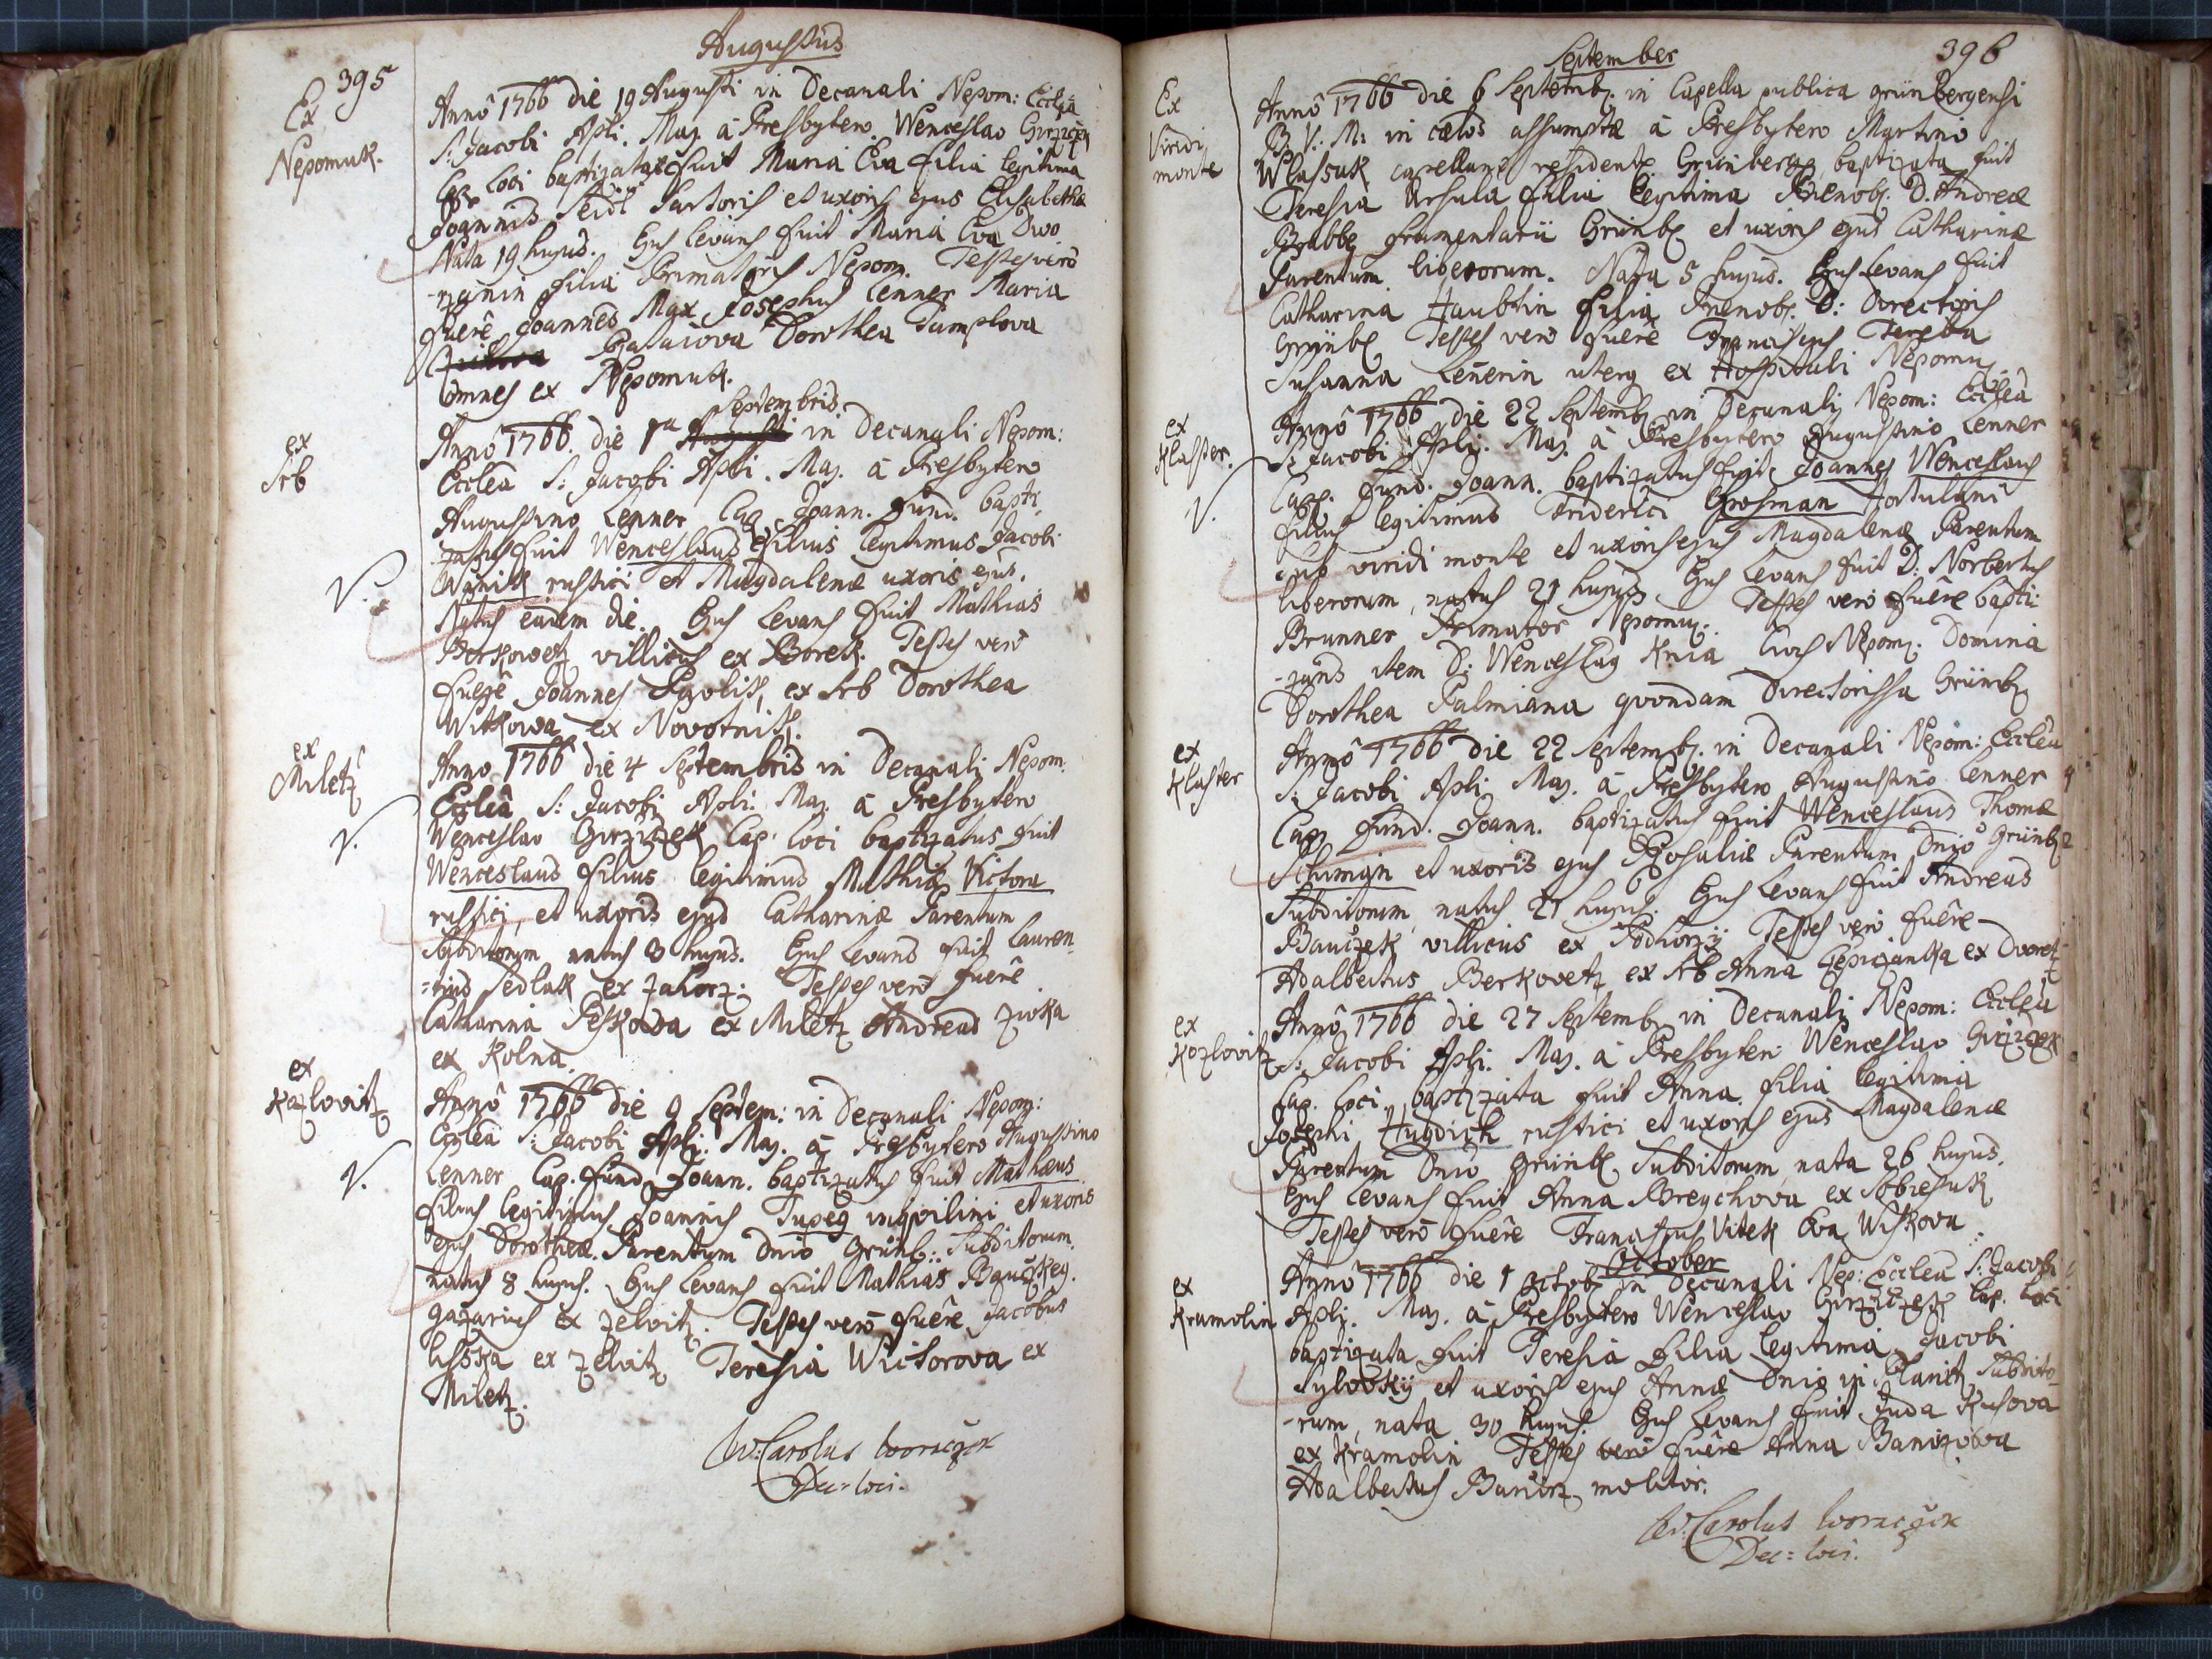 Augustus
395
Ex
Nepomuk.
Annô 1766 die 19 Augusti in Decanali Nepom: Ecclâ
S: Jacobi Apli. Maj. à Presbytero Wenceslao Girziczek
Cap. Loci baptizata fuit Maria Eva filia legitima
Joannis Seidl Sartoris et uxoris ejus Elisabethæ
Nata 19 hujus. Ejus Levans fuit Maria Eva Dwo
-rzanin filia Primatoris Nepom. Testes verô
fuerê Joannes Max Josephus Lenner Maria
Dorothea Tumplova
omnes ex Nepomuk.
ex
Srb
Septembris
Annô 1766. die 1ma Augusti in Decanali Nepom:
Ecclea S: Jacobi Apli. Maj. à Presbytero
Augustino Lenner Cap. Joann. Fund. bapti-
zatus fuit Wenceslaus filius legitimus Jacobi
Wanik rustici et Magdalenæ uxoris ejus.
V.
Natus eadem die. Ejus Levans fuit Mathias
Berkowetz villicus ex Borek. Testes verô
fuerê Joannes ex Srb Dorothea
Witkowa ex Novotnik.
ex
Miletz
V.
Anno 1766 die 4 Septembris in Decanali Nepom.
Ecclea S: Jacobi Apli: Maj. à Presbytero
Wenceslao Girziczek Cap. Loci baptizatus fuit
Wenceslaus filius legitimus Mathiæ Victora
rustici, et uxoris ejus Catharinæ Parentum
Subditorum natus 3 hujus. Ejus Levans fuit Lauren-
-tius Sedlak ex Zahorz: Testes verô fuerê
Catharina Peskowa ex Miletz Andreas Zivka
ex Kolna.
ex
Kozlovitz
V.
Annô 1766 die 9 Septem: in Decanali Nepom:
Ecclea S: Jacobi Apli. Maj. à Presbytero Augustino
Lenner Cap. Fund. Joann. baptizatus fuit Mathæus
filius legitimus Joannis Tupeg inqvilini et uxoris
ejus Dorotheæ. Parentum Dnio Grünb: Subditorum.
natus 8 hujus. Ejus Levans fuit Mathias Bauczkeg.
gazarius ex Zelvitz. Testes verô fuêre Jacobus
Lisska ex Zelvitz Teresia Wictorova ex
Miletz.
Carolus Woraczek
Dec: loci.
September
396
Ex
Viridi
monte
Annô 1766 die 6 Septemb. in Capella publica grünbergensi
B. V. M: in cælos assumptæ à Presbytero Martino
Wlassak capellano residente Grünbergæ baptizata fuit
Teresia Ursula filia legitima Prænob. D. Andreæ
Brabbe frumentarii Grünb. et uxoris ejus Catharinæ
Parentum liberorum. Nata 5 hujus. Ejus Levans fuit
Catharina Haubtin filia Prænob. D: Directoris
Grünb. Testes verô fuêre Franciscus Tereba
Susanna Lenerin uterq ex Hospitali Nepomu.
ex
Klaster.
V.
Annô 1766 die 22 Septemb. in Decanali Nepom: Ecclea
S: Jacobi Apli: Maj. à Presbytero Augustino Lenner
Cap. Fund. Joann. baptizatus fuit Joannes Wenceslaus
filius legitimus Friderici Grosman Hortulani
sub viridi monte et uxoris ejus Magdalenæ Parentum
liberorum, natus 21 hujus. Ejus Levans fuit D. Norbertus
Brunner Primator Nepomu. Testes verô fuêre bapti-
-zans item D: Wenceslaus Knia Civis Nepom. Domina
Dorothea Palmiana qvondam Directorissa Grünb.
ex
Klaster
Annô 1766 die 22 Septemb. in Decanali Nepom: Ecclea
S: Jacobi Apli. Maj. à Presbytero Augustino Lenner
Cap. Fund. Joann. baptizatus fuit Wenceslaus Thomæ
Schiman et uxoris ejus Rosaliæ Parentum Dnio Grünb.
Subditorum, natus 21 hujus. Ejus Levans fuit Andreas
Bauczek villicus ex Podhorzy Testes verô fuêre
Adalbertus Berkovetz ex Srb Anna Czepiczanka ex Dvoretz
ex
Kozlovitz
Annô 1766 die 27 Septemb. in Decanali Nepom: Ecclea
S: Jacobi Apli. Maj. à Presbytero Wenceslao Girziczek
Cap. Loci. baptizata fuit Anna filia legitima
Josephi Hugdich rustici et uxoris ejus Magdalenæ
Parentum Dnio Grünb. Subditorum, nata 26 hujus.
Ejus Levans fuit Anna Breychova ex Sobiesuk
Testes verô fuêre Franciscus Vitek Eva Wiskova
October
ex
Kramolin
Annô 1766 die 1 Octob. in Decanali Nep: Ecclea S: Jacobi
Apli. Maj. à Presbytero Wenceslao Girziczek Cap. Loci
baptizata fuit Teresia filia legitima Jacobi
Sylovsky et uxoris ejus Annæ Dnio in Planitz Subdito-
-rum, nata 30 hujus. Ejus Levans fuit Juda Kusova
ex Kramolin Testes verô fuêre Anna Banizova
Adalbertus Banirz molitor.
Carolus Woraczek
Dec: loci.
10